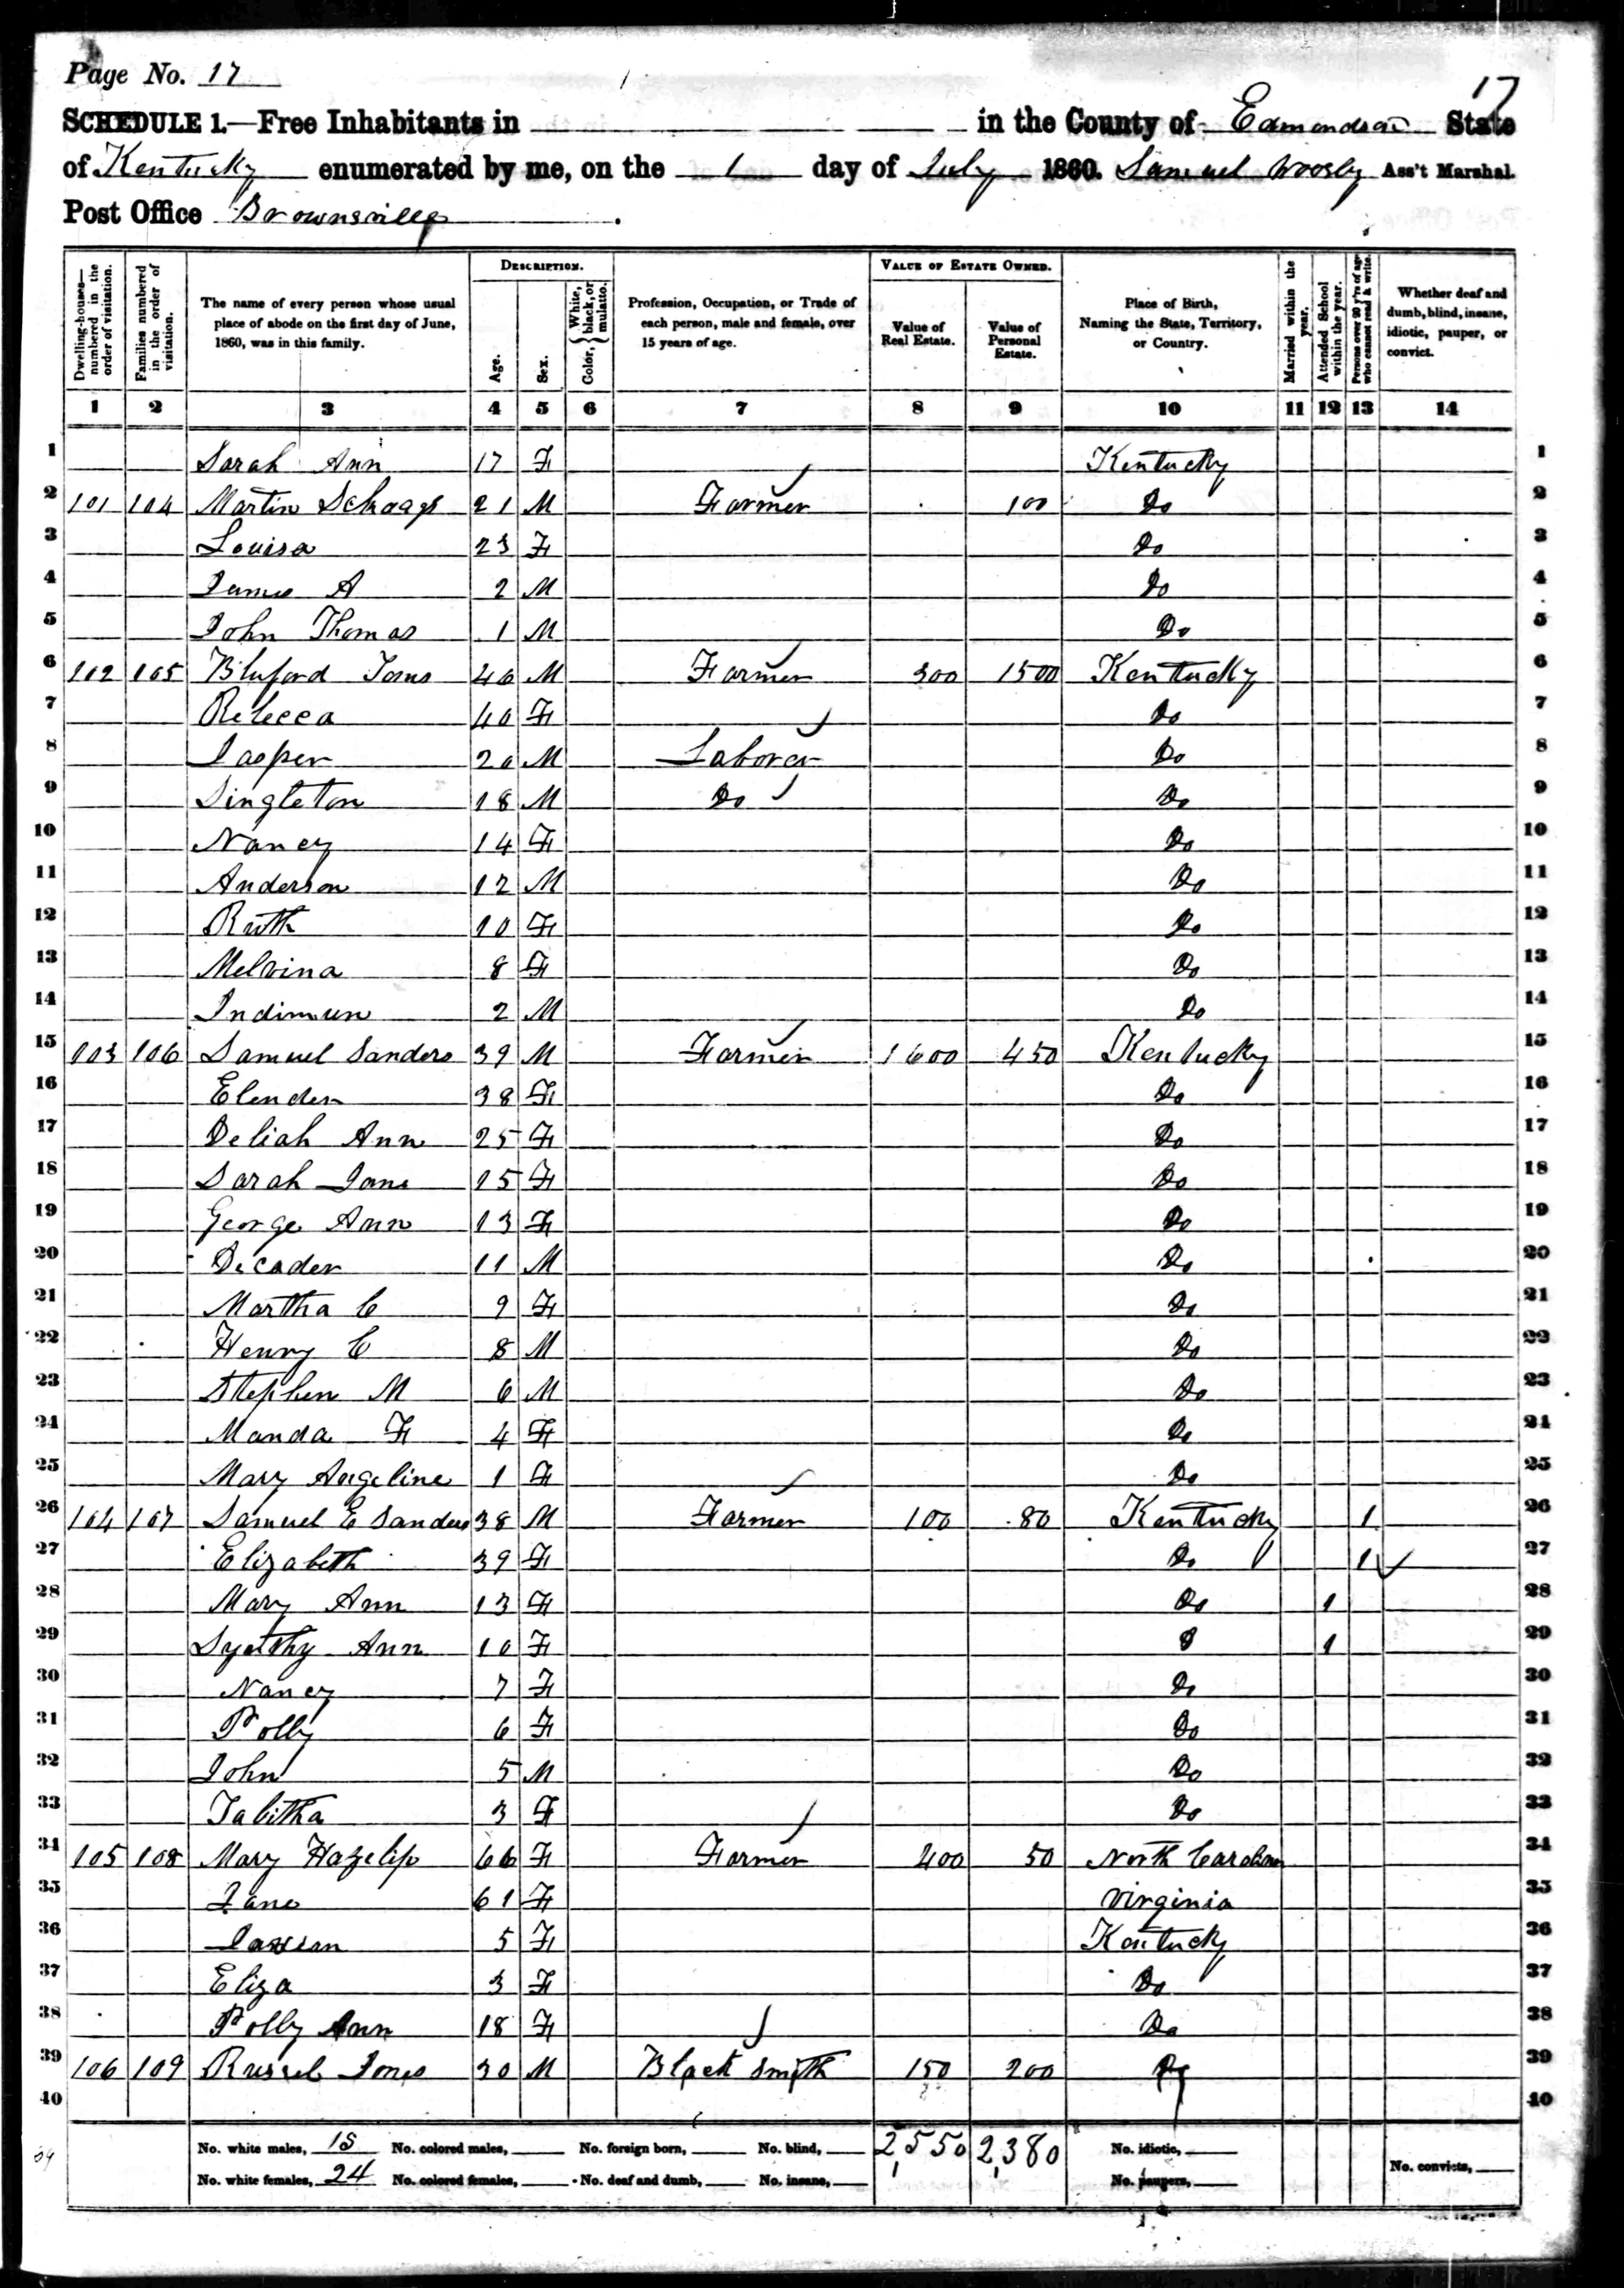 Page No. 17
17
SCHEDULE 1.—Free Inhabitants in in the County of Edmondson State
of Kentucky enumerated by me, on the 1 day of July 1860. Samuel Woosley Ass't Marshal.
Post Office Brownsville.
Dwelling-houses—numbered in the order of visitation. Families numbered in the order of visitation. The name of every person whose usual place of abode on the first day of June, 1860, was in this family. DESCRIPTION. Age. Sex. Color, White, black, or mulatto. Profession, Occupation, or Trade of each person, male and female, over 15 years of age. VALUE OF ESTATE OWNED. Value of Real Estate. Value of Personal Estate. Place of Birth, Naming the State, Territory, or Country. Married within the year. Attended School within the year. Persons over 20 y'rs of age who cannot read & write. Whether deaf and dumb, blind, insane, idiotic, pauper, or convict.
1 2 3 4 5 6 7 8 9 10 11 12 13 14
1 Sarah Ann 17 F Kentucky 1
2 101 104 Martin Schaags 21 M Farmer 100 Do 2
3 Louisa 23 F Do 3
4 James A 2 M Do 4
5 John Thomas 1 M Do 5
6 102 105 Bluford 40 M Farmer 300 1500 Kentucky 6
7 Rebecca 40 F Do 7
8 Jasper 20 M Laborer Do 8
9 Singleton 18 M Do Do 9
10 Nancy 14 F Do 10
11 Anderson 12 M Do 11
12 Ruth 10 F Do 12
13 Melvina 8 F Do 13
14 Indimun 2 M Do 14
15 103 106 Samuel Sanders 39 M Farmer 1600 450 Kentucky 15
16 Elender 38 F Do 16
17 Deliah Ann 25 F Do 17
18 Sarah Jane 15 F Do 18
19 George Ann 13 F Do 19
20 Decader 11 M Do 20
21 Martha C 9 F Do 21
22 Henry C 8 M Do 22
23 Stephen M 6 M Do 23
24 Manda F 4 F Do 24
25 Mary Angeline 1 F Do 25
26 104 107 Samuel E Sanders 38 M Farmer 100 80 Kentucky 1 26
27 Elizabeth 39 F Do 1 27
28 Mary Ann 13 F Do 1 28
29 Synthy Ann 10 F 1 29
30 Nancy 7 F Do 30
31 Polly 6 F Do 31
32 John 5 M Do 32
33 Tabitha 3 F Do 33
34 105 108 Mary Hazelip 66 F Farmer 400 50 North Carolina 34
35 Jane 61 F Virginia 35
36 5 F Kentucky 36
37 Eliza 3 F Do 37
38 Polly Ann 18 F Do 38
39 106 109 Russel Jones 30 M Black Smith 150 200 39
40 40
No. white males, 15 No. colored males, No. foreign born, No. blind, 2,550 2,380 No. idiotic,
No. white females, 24 No. colored females, No. deaf and dumb, No. insane, No. paupers, No. convicts,